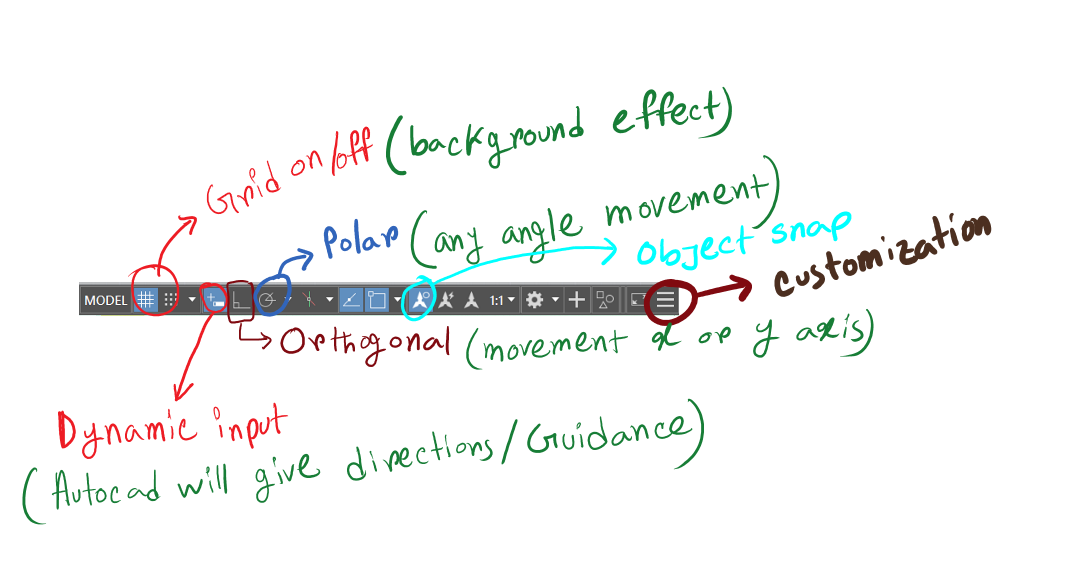 Grid on/off (background effect)
Polar (any angle movement)
Object snap
customization
MODEL 1:1
Orthogonal (movement x or y axis)
Dynamic input
(Autocad will give directions/Guidance)